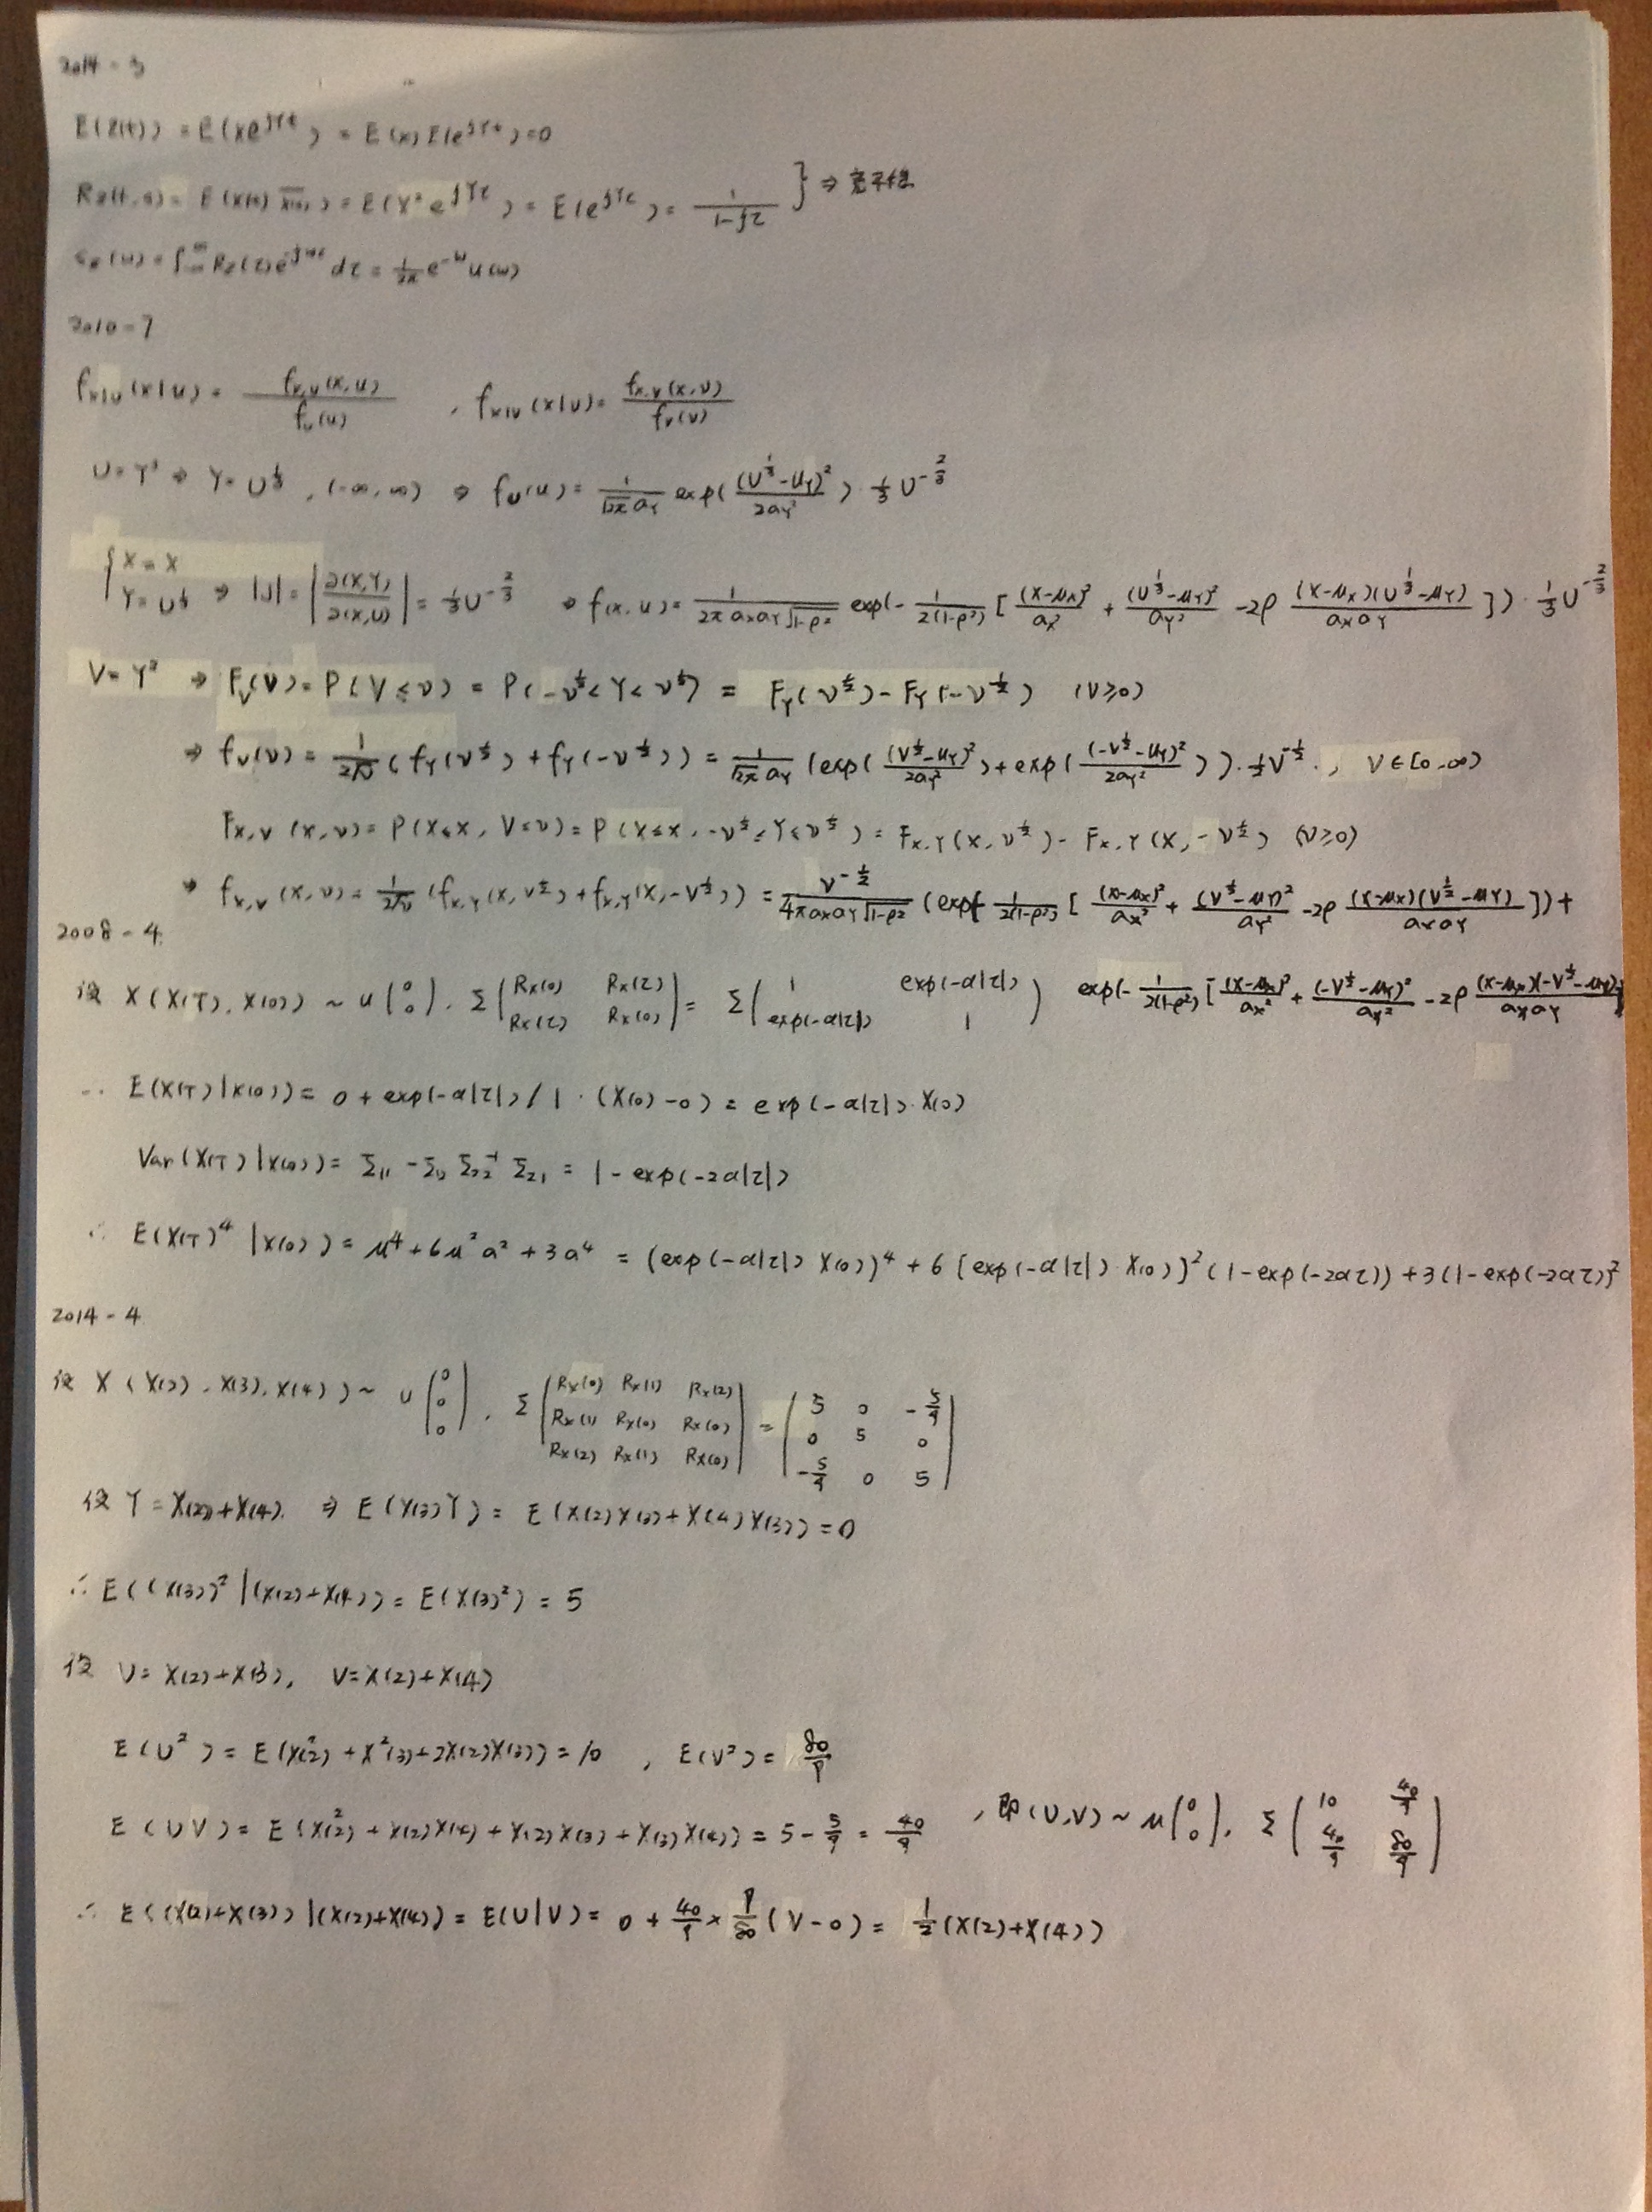 2014-3
E(Z(t)) = E(Xe^{jYt}) = E(X)E(e^{jYt}) = 0
R_Z(t,s) = E(X(t) \overline{X(s)}) = E(X²e^{jYτ}) = E(e^{jYτ}) = 1/(1-jτ) } ⇒ 宽平稳
S_Z(ω) = ∫_{-∞}^{∞} R_Z(τ)e^{-jωτ} dτ = 1/(2π) e^{-ω} u(ω)
2010-7
f_{X|U}(x|u) = f_{X,U}(x,u)/f_U(u) , f_{X|V}(x|v) = f_{X,V}(x,v)/f_V(v)
U=Y³ ⇒ Y=U^{1/3}, (-∞,∞) ⇒ f_U(u) = 1/(√(2π) σ_Y) exp((U^{1/3}-μ_Y)²/(2σ_Y²)) · 1/3 U^{-2/3}
{X=X, Y=U^{1/3} ⇒ |J| = |∂(X,Y)/∂(X,U)| = 1/3 U^{-2/3} ⇒ f(x,u) = 1/(2πσ_Xσ_Y√(1-ρ²)) exp(-1/(2(1-ρ²)) [(X-μ_X)²/σ_X² + (U^{1/3}-μ_Y)²/σ_Y² - 2ρ (X-μ_X)(U^{1/3}-μ_Y)/(σ_Xσ_Y)]) · 1/3 U^{-2/3}
V=Y² ⇒ F_V(v) = P(V≤v) = P(-v^{1/2}<Y<v^{1/2}) = F_Y(v^{1/2}) - F_Y(-v^{1/2}) (v≥0)
⇒ f_V(v) = 1/(2√v) (f_Y(v^{1/2}) + f_Y(-v^{1/2})) = 1/(√(2π) σ_Y) (exp((V^{1/2}-μ_Y)²/(2σ_Y²)) + exp((-V^{1/2}-μ_Y)²/(2σ_Y²))) · 1/2 V^{-1/2} , V∈[0,∞)
F_{X,V}(x,v) = P(X≤x, V≤v) = P(X≤x, -v^{1/2}≤Y≤v^{1/2}) = F_{X,Y}(x,v^{1/2}) - F_{X,Y}(x,-v^{1/2}) (v≥0)
⇒ f_{X,V}(x,v) = 1/(2√v) (f_{X,Y}(x,v^{1/2}) + f_{X,Y}(x,-v^{1/2})) = v^{-1/2}/(4πσ_Xσ_Y√(1-ρ²)) (exp(-1/(2(1-ρ²)) [(X-μ_X)²/σ_X² + (V^{1/2}-μ_Y)²/σ_Y² - 2ρ (X-μ_X)(V^{1/2}-μ_Y)/(σ_Xσ_Y)]) +
exp(-1/(2(1-ρ²)) [(X-μ_X)²/σ_X² + (-V^{1/2}-μ_Y)²/σ_Y² - 2ρ (X-μ_X)(-V^{1/2}-μ_Y)/(σ_Xσ_Y)]
2008-4
设 X(X(T), X(0)) ~ μ(0 0), Σ(R_X(0) R_X(τ) R_X(τ) R_X(0)) = Σ(1 exp(-α|τ|) exp(-α|τ|) 1)
∴ E(X(T)|X(0)) = 0 + exp(-α|τ|)/1 · (X(0)-0) = exp(-α|τ|)·X(0)
Var(X(T)|X(0)) = Σ₁₁ - Σ₁₂ Σ₂₂⁻¹ Σ₂₁ = 1 - exp(-2α|τ|)
∴ E(X(T)⁴ |X(0)) = μ⁴+6μ²σ²+3σ⁴ = (exp(-α|τ|) X(0))⁴ + 6 [exp(-α|τ|)·X(0)]² (1-exp(-2ατ)) + 3(1-exp(-2ατ))²
2014-4
设 X (X(2), X(3), X(4)) ~ μ(0 0 0), Σ(R_X(0) R_X(1) R_X(2) R_X(1) R_X(0) R_X(0) R_X(2) R_X(1) R_X(0)) = (5 0 -5/9 0 5 0 -5/9 0 5)
设 Y=X(2)+X(4). ⇒ E(X(3)Y) = E(X(2)X(3)+X(4)X(3)) = 0
∴ E((X(3))² |(X(2)+X(4)) = E(X(3)²) = 5
设 U=X(2)+X(3), V=X(2)+X(4)
E(U²) = E(X²(2) + X²(3)+2X(2)X(3)) = 10 , E(V²) = 80/9
E(UV) = E(X²(2) + X(2)X(4) + X(2)X(3) + X(3)X(4)) = 5 - 5/9 = 40/9 , 即(U,V) ~ μ(0 0), Σ(10 40/9 40/9 80/9)
∴ E((X(2)+X(3)) |(X(2)+X(4)) = E(U|V) = 0 + 40/9 × 9/80 (V-0) = 1/2 (X(2)+X(4))